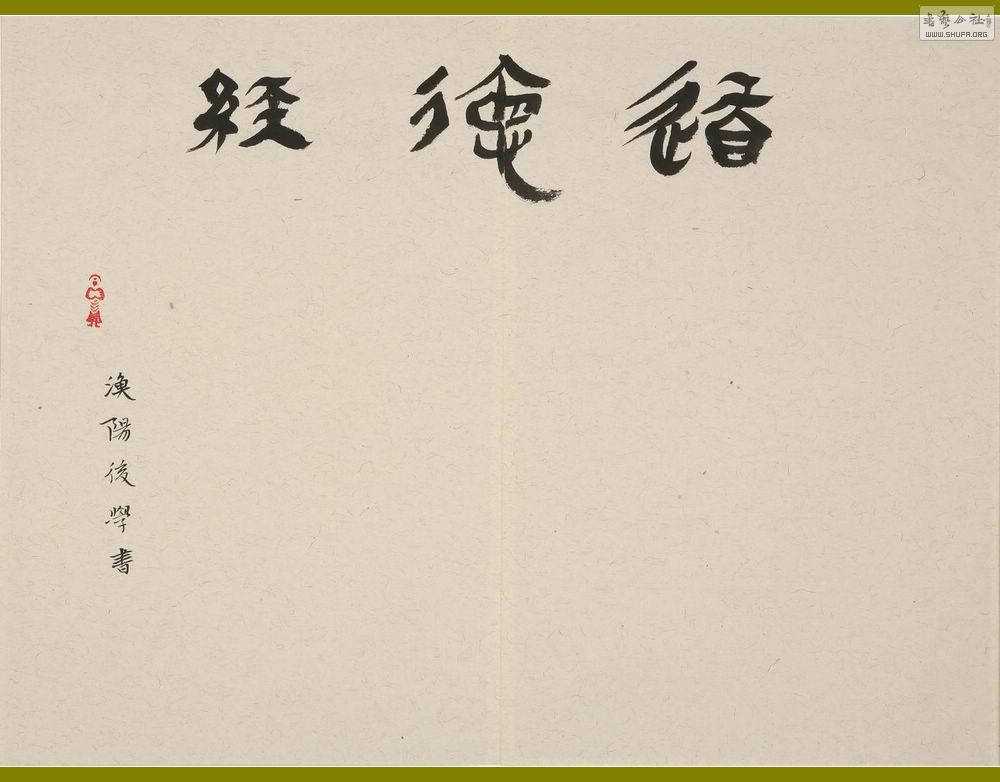 道德經
漁陽後學書
書藝公社
WWW.SHUFA.ORG